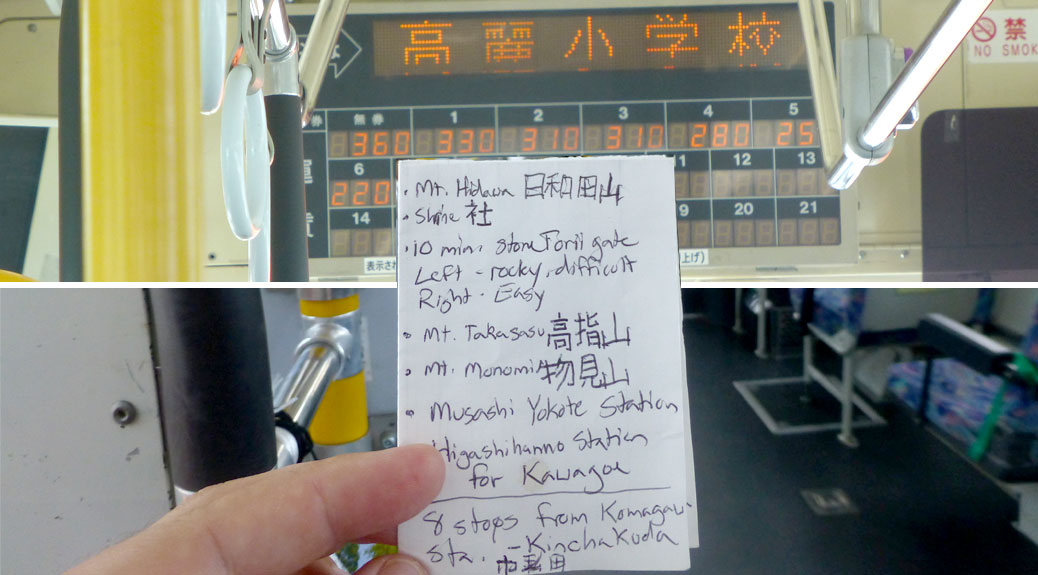 高麗小学校
禁
NO SMOK
券 無券 1 2 3 4 5
360 330 310 310 280 25
6 12 13
220
14 19 20 21
表示さ
上げ)
・Mt. Hidawa 日和田山
・Shrine 社
・10 min. stone Torii gate
Left - rocky, difficult
Right - Easy
・Mt. Takasasu 高指山
・Mt. Monomi 物見山
・Musashi Yokote Station
Higashihanno Station
for Kawagoe
8 stops from Komagawa
Sta. - Kinchakuda
巾着田